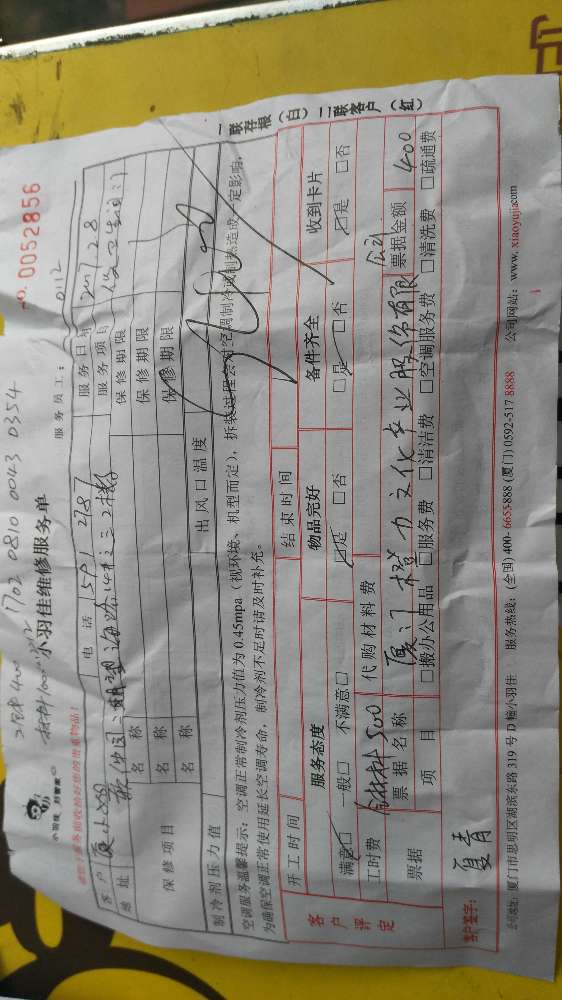 No. 0052856
1702 0810 0043 0354
小羽佳 好管家
小羽佳维修服务单
服务员工： 0112
请您于服务前收拾好您的贵重物品！
客户 夏小姐 电话 5912787 服务日期 2017.2.8
地址 软件园二期望海路14号之三2楼 服务项目
保修项目 名称 保修期限
名称 保修期限
名称 保修期限
制冷剂压力值 出风口温度
空调服务温馨提示：空调正常制冷剂压力值为0.45mpa（视环境、机型而定），拆装过程会对空调制冷或制热造成一定影响，
为确保空调正常使用延长空调寿命，制冷剂不足时请及时补充。
开工时间 结束时间
客户评定 服务态度 物品完好 备件齐全 收到卡片
满意□ 一般□ 不满意□ □是 □否 □是 □否 □是 □否
工时费 代购材料费
票据 票据名称 厦门橙力文化产业股份有限公司 票据金额 400
项目 □搬办公用品 □服务费 □清洁费 □空调服务费 □清洗费 □疏通费
客户签字： 夏青
公司地址：厦门市思明区湖滨东路319号D幢小羽佳 服务热线：(全国)400-6655-888 (厦门) 0592-517 8888 公司网站：www.xiaoyujia.com
一联存根（白）二联客户（红）